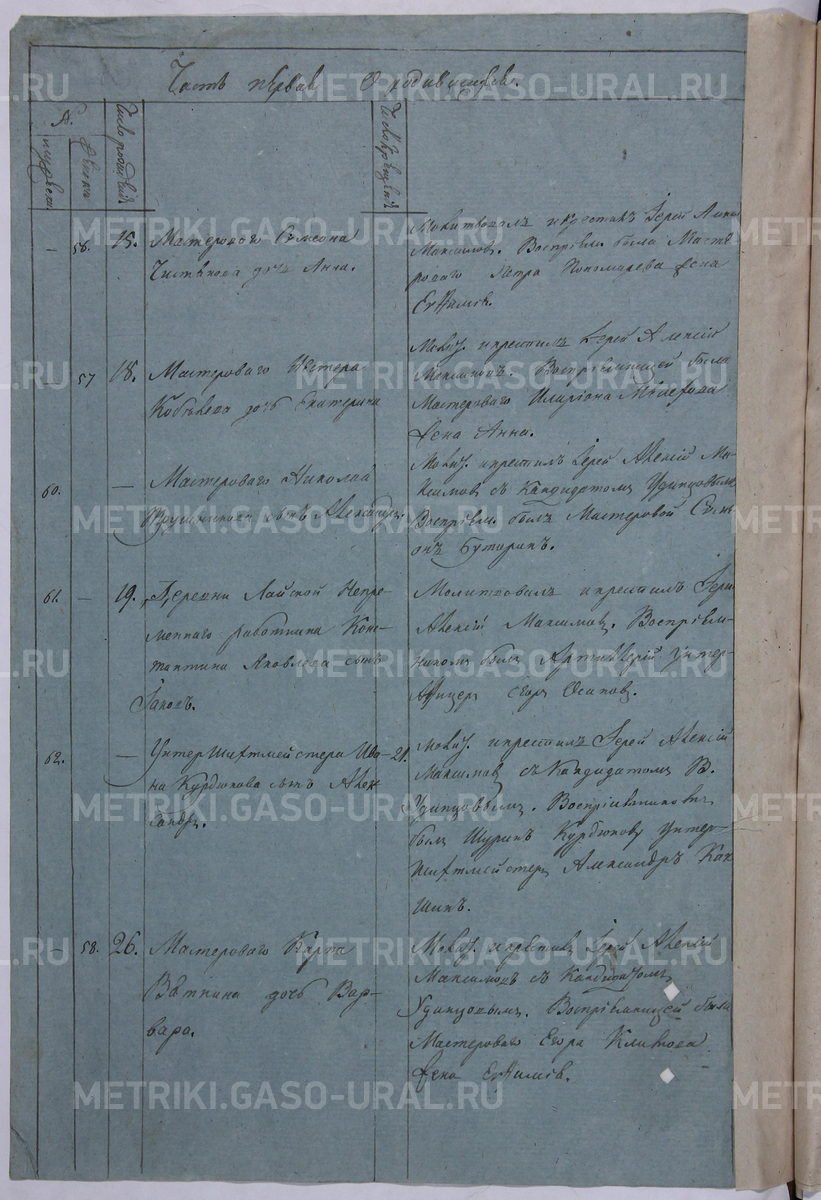 Часть первая О родившихся.
№.
мужеска
женска
Число рождения
Число крещения
— 56. 15. Мастероваго Симеона
дочь Анна.
Молитвовалъ и крестилъ Іерей Алекс
Максимовъ. Воспріем. была Масте
роваго Петра Пономарева жена
Евфимія.
— 57 18. Мастероваго Нестера
дочь Екатерина
Молит. и крестилъ Іерей Алексій
Максимовъ. Воспріемницей была
Мастероваго Иларіона
жена Анна.
60. — Мастероваго Николая
сынъ Александръ.
Молит. и крестилъ Іерей Алексій Ма-
ксимовъ съ Кандидатомъ Удинцовымъ
Воспріем. былъ Мастеровой Сѵме
онъ Бутаринъ.
61. — 19. Деревни Лайской Непре-
меннаго работника Конс-
тантина Яковлева сынъ
Іаковъ.
Молитвовалъ и крестилъ Іерей
Алексій Максимовъ. Воспріем-
никомъ былъ Артиллеріи унтер-
Офицеръ Егоръ Осиповъ.
62. — Унтер Шихтмейстера Ива-
на Курдюкова сынъ Алек-
сандръ.
21. Молит. и крестилъ Іерей Алексій
Максимовъ съ Кандидатомъ В.
Удинцовымъ. Воспріемникомъ
былъ Шуринъ Курдюкову Унтер-
Шихтмейстеръ Александръ Кок
шинъ.
— 58. 26. Мастероваго Карпа
Вяткина дочь Вар-
вара.
Молит. и крестилъ Іерей Алексій
Максимовъ съ Кандидатомъ
Удинцовымъ. Воспріемницей была
Мастероваго Егора Климова
жена Евфимія.
METRIKI.GASO-URAL.RU